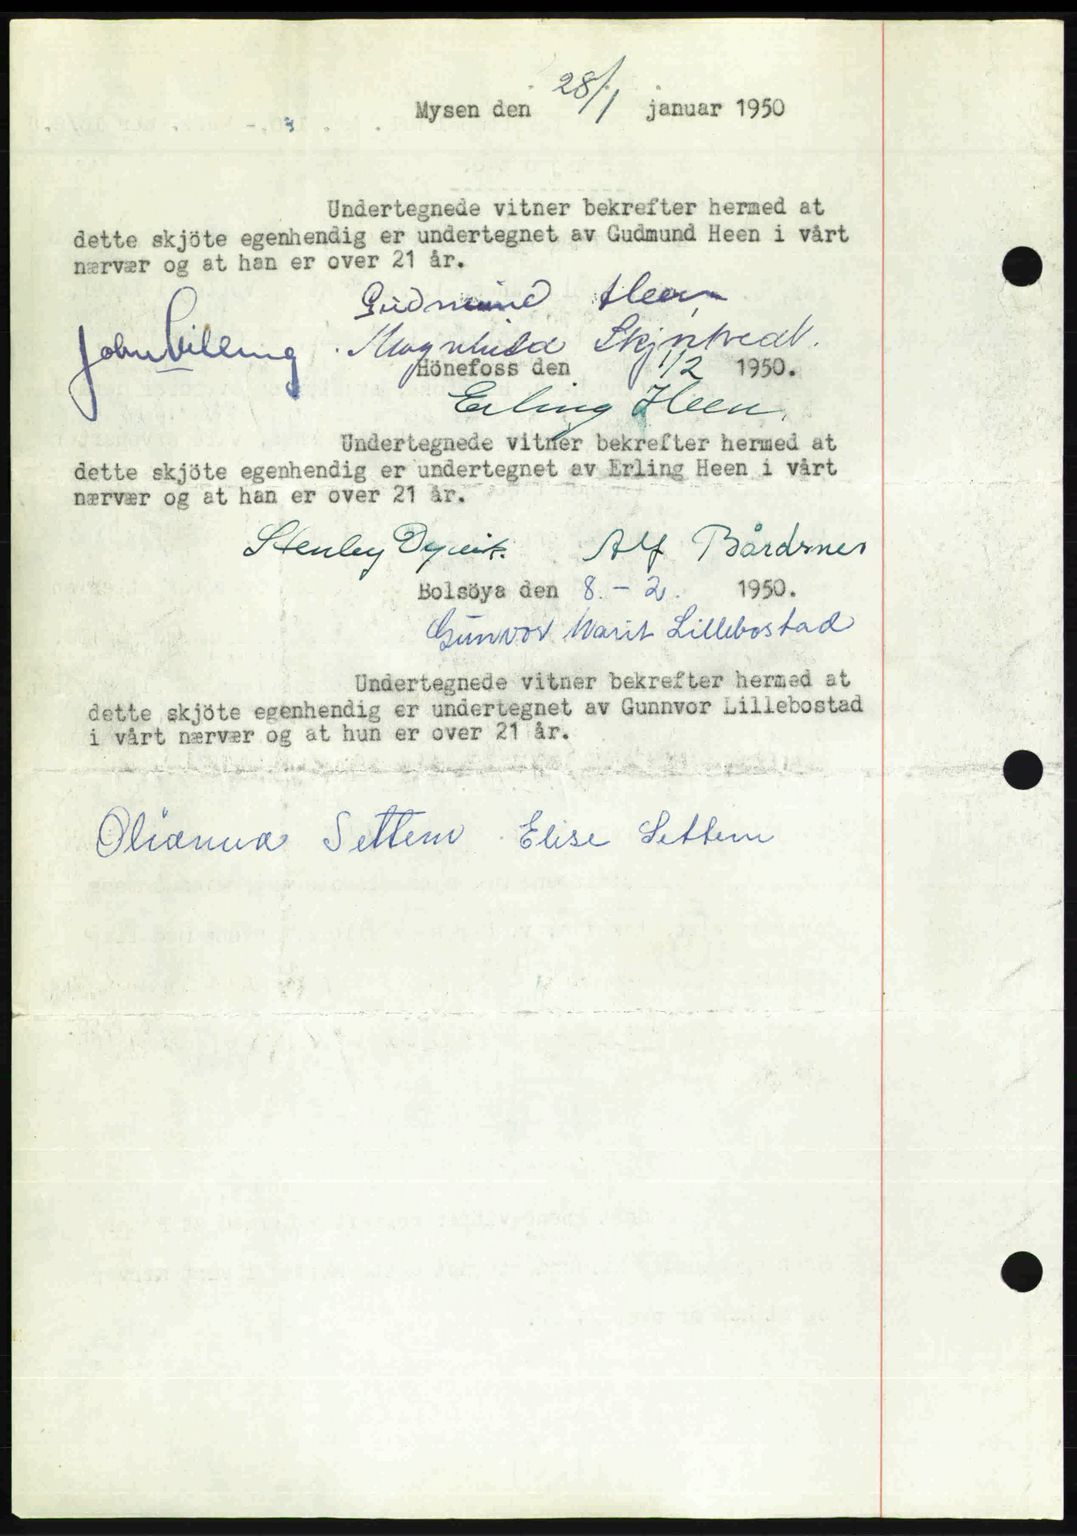 Mysen den 28/1 januar 1950
Undertegnede vitner bekrefter hermed at
dette skjöte egenhendig er undertegnet av Gudmund Heen i vårt
nærvær og at han er over 21 år.
Gudmund Heen
John Magnhild
Hönefoss den 1/2 1950.
Erling Heen.
Undertegnede vitner bekrefter hermed at
dette skjöte egenhendig er undertegnet av Erling Heen i vårt
nærvær og at han er over 21 år.
Stenley Alf Bårdsnes
Bolsöya den 8. - 2. 1950.
Gunvor Marit Lillebostad
Undertegnede vitner bekrefter hermed at
dette skjöte egenhendig er undertegnet av Gunnvor Lillebostad
i vårt nærvær og at hun er over 21 år.
Olianna Settem Elise Settem